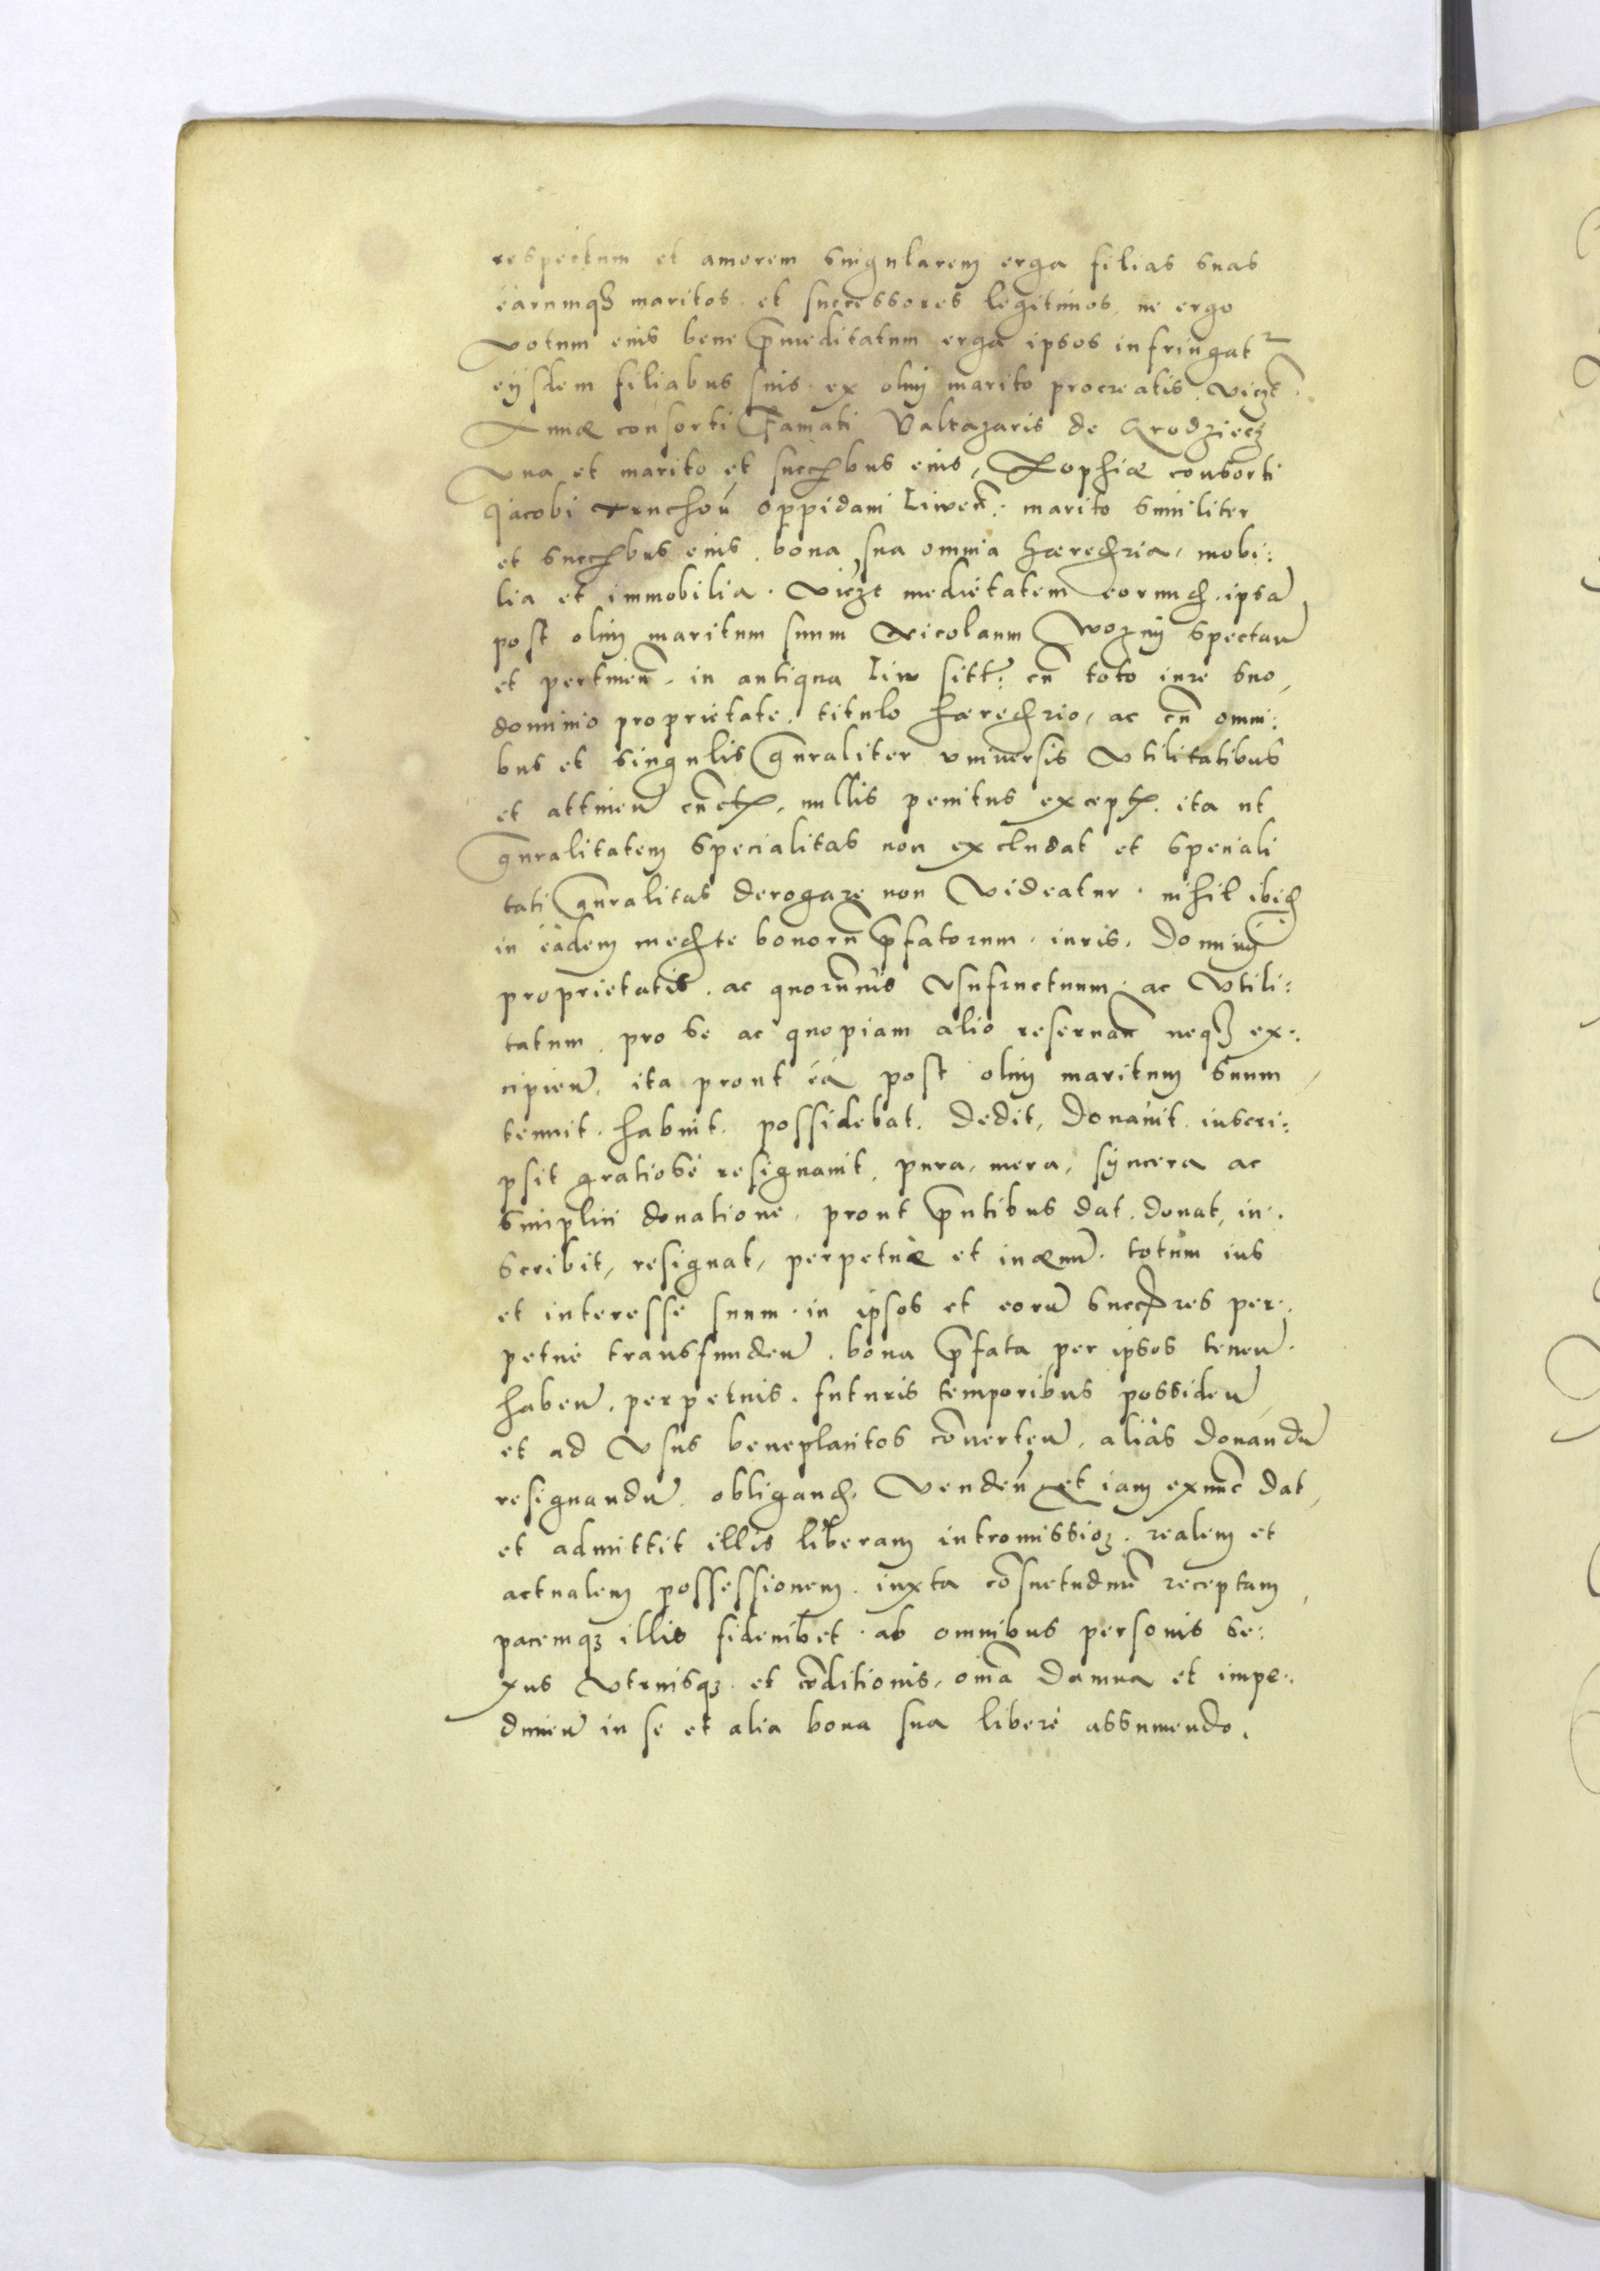 respectum et amorem singularem erga filias suas
earumqȝ maritos et successores legitimos, ne ergo
votum eius bene p̄meditatum erga ipsos infringat᷑
eijsdem filiabus suis ex olim marito procreatis, viczt
Annæ consorti famati Baltazaris de Grodziecz
vna et marito et succ̄ribus eius, Zophiæ consorti
Jacobi oppidani Liwen̄. marito similiter
et succ̄ribus eius, bona sua omnia hæred̄ria, mobi:
lia et immobilia. viczt medietatem eorund̄. ipsā
post olim maritum suum Nicolaum Wozny spectan̄
et pertinen̄. in antiqua Liw sitt: cū toto iure suo,
dominio proprietate, titulo hæred̄rio, ac cū omni:
bus et singulis gn̄raliter vniuersis vtilitatibus
et attinen̄ cūctis, nullis penitus exceptis. ita ut
gn̄ralitatem specialitas non excludat et speciali
tati gn̄ralitas derogare non videatur. nihil ibid̄
in eâdem med̄te bonorū p̄fatorum. iuris, dominij
proprietatis, ac quorūuis vsufructuum. ac vtili:
tatum, pro se ac quopiam alio reseruan̄ neqȝ ex:
cipien̄, ita prout ea post olim maritum suum,
tenuit, habuit, possidebat, dedit, donauit, inscri:
psit gratiosè resignauit, pura, mera, syncera ac
simplici donatione, prout pn̄tibus dat, donat, in:
scribit, resignat, perpetuæ et inæuū. totum ius
et interesse suum in ipsos et eorū succ̄res per:
petuè transfunden̄. bona p̄fata per ipsos tenen̄.
haben̄. perpetuis, futuris temporibus possiden̄,
et ad vsus beneplacitos cōuerten̄, aliàs donandū
resignandū, obligand̄. venden̄ et iam exnūc dat,
et admittit illis liberam intromissioȝ. realem et
actualem possessionem. iuxta cōsuetudinē receptam,
pacemqȝ illis fideiubet. ab omnibus personis se:
xus vtriusqȝ. et cōditionis, oīna damna et impe:
dimen̄ in se et alia bona sua liberè assumendo.